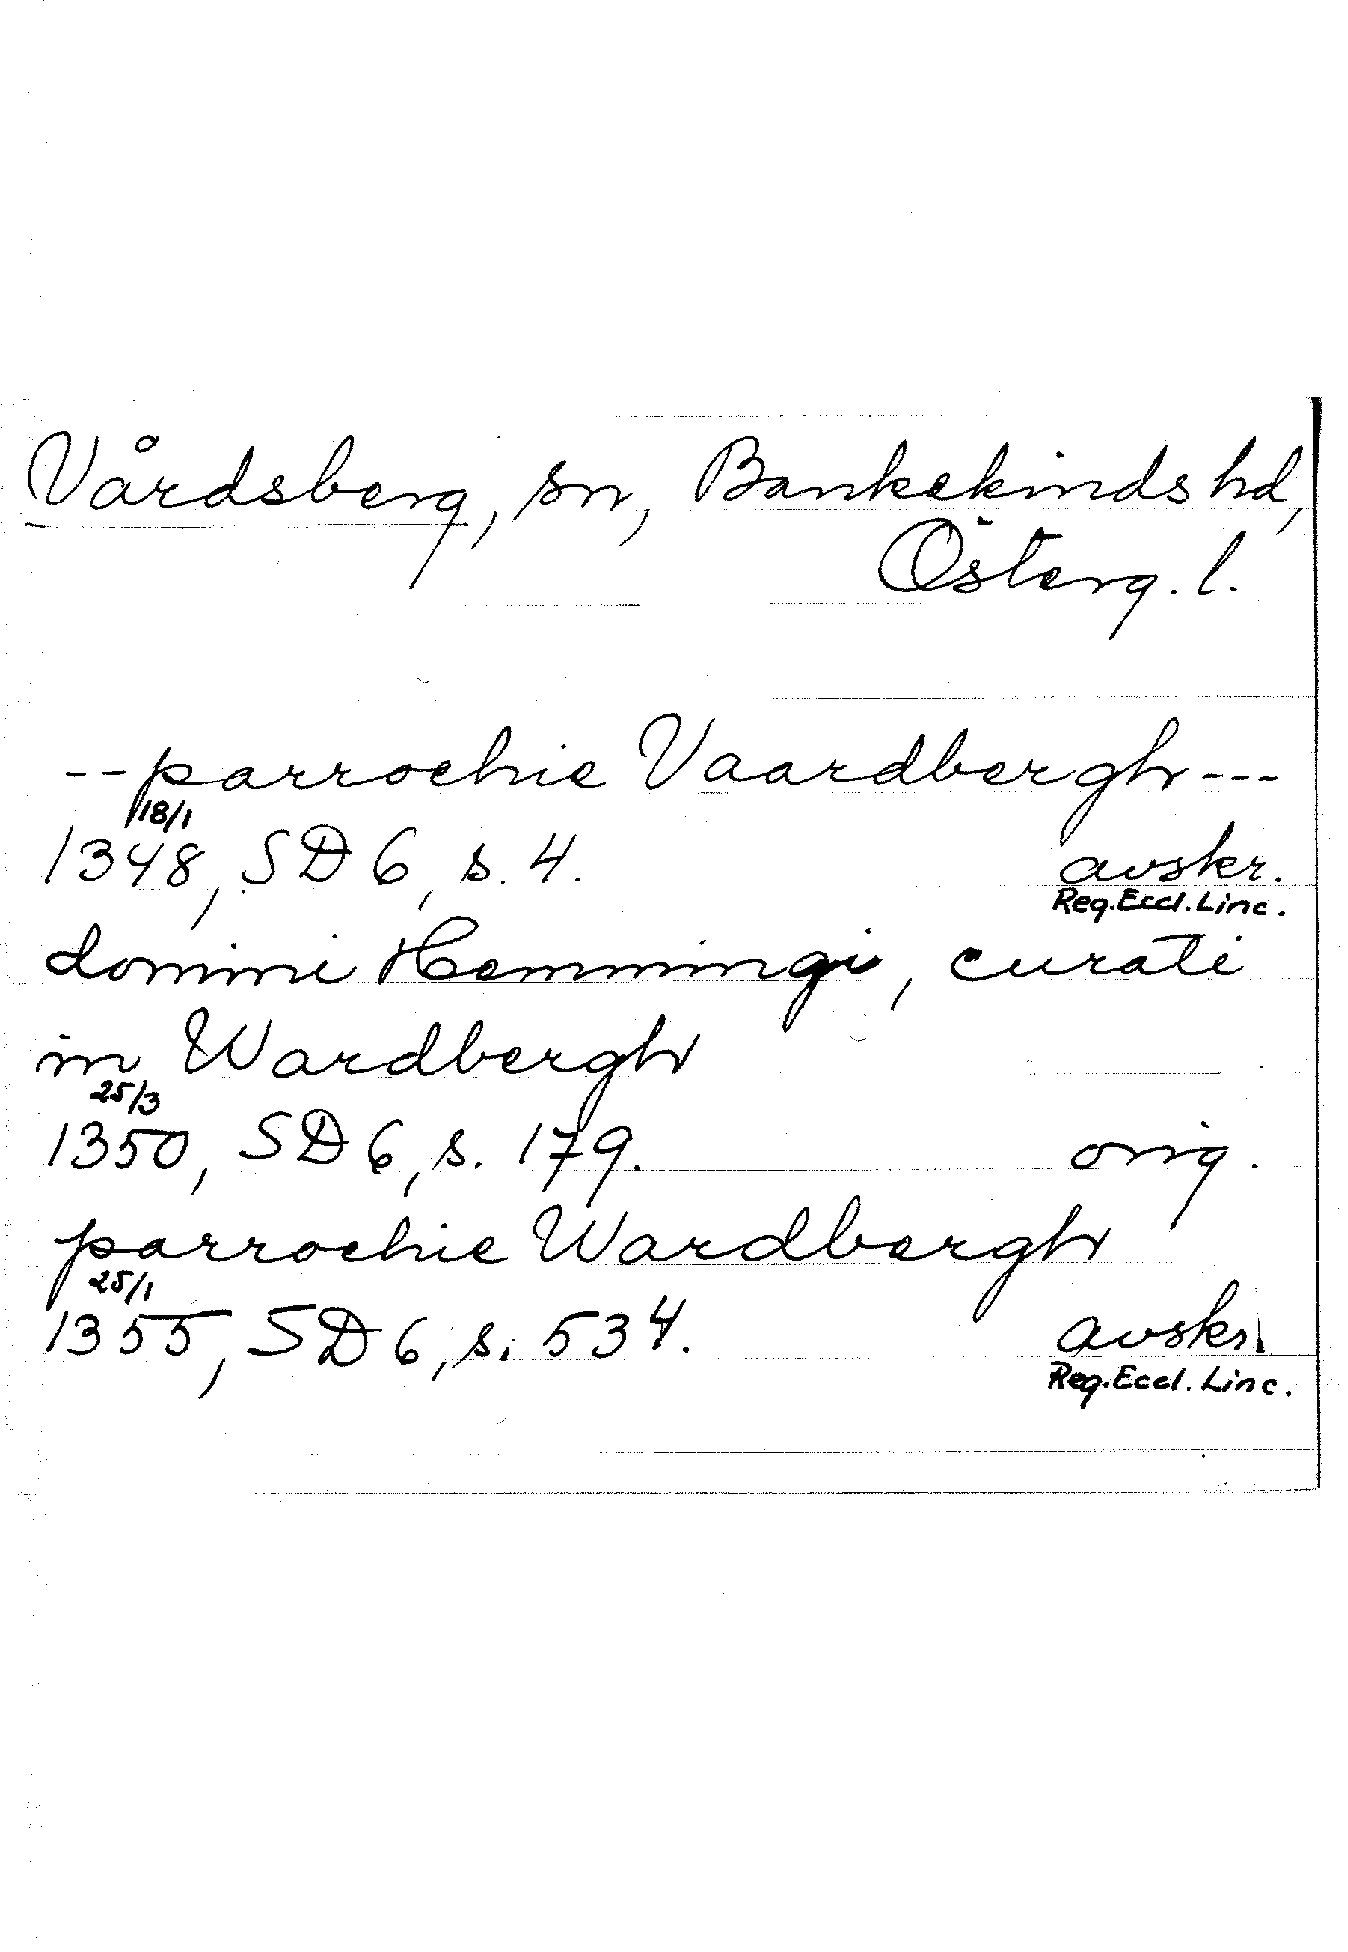 Vårdsberg, sn, Bankekinds hd,
Österg. l.
--parrochie Vaardbergh---
18/1
1348, SD 6, s. 4. avskr.
Reg. Eccl. Linc.
domini Hemmingi, curati
in Wardbergh
25/3
1350, SD 6, s. 179. orig.
parrochie Wardbergh
25/1
1355, SD 6, s. 534. avskr.
Reg. Eccl. Linc.